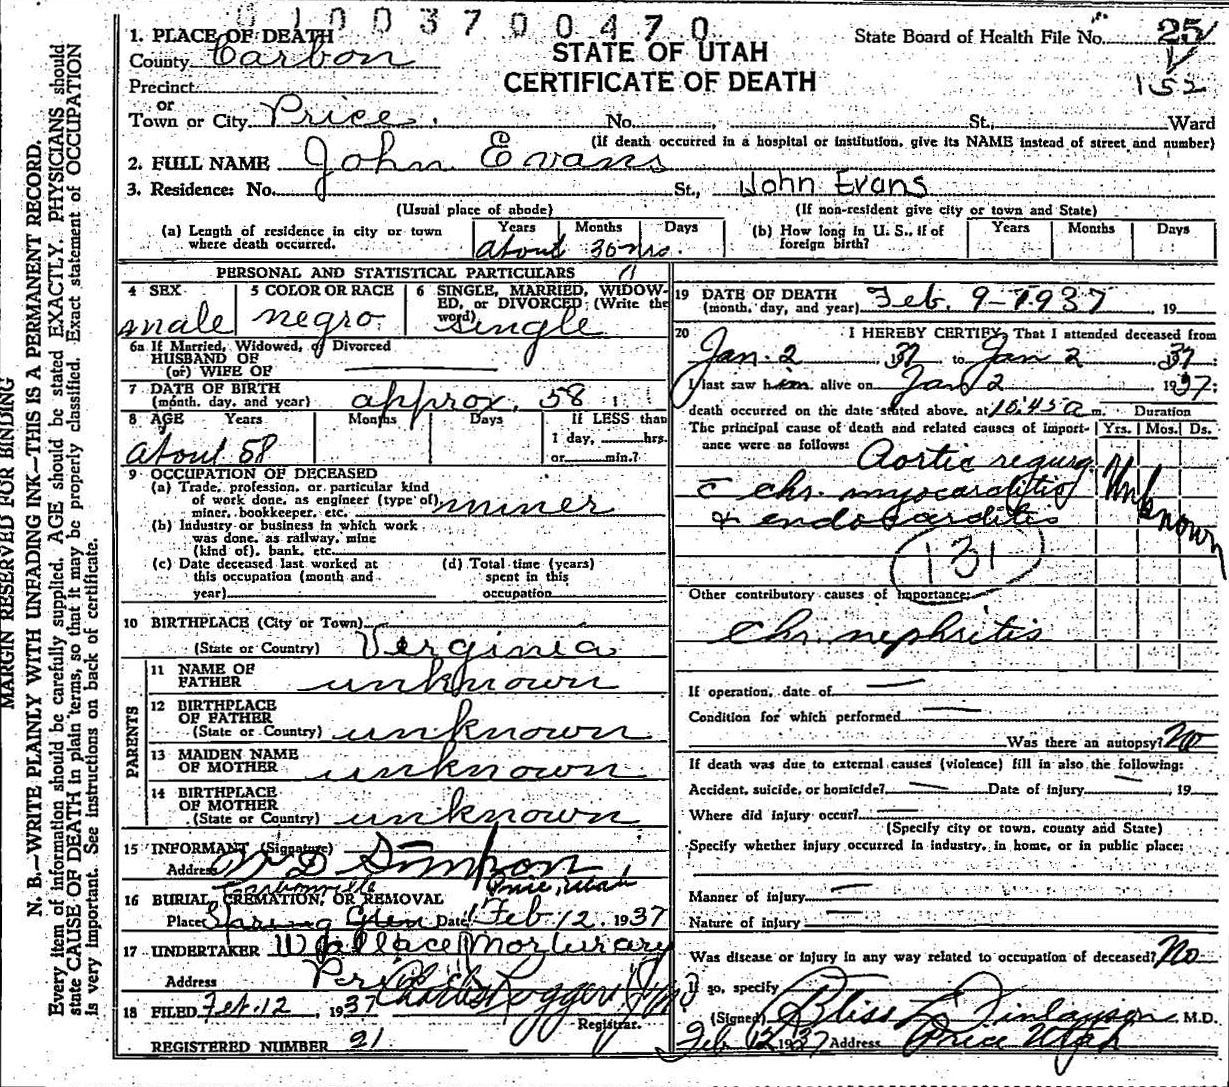 01003700470
1. PLACE OF DEATH
County Carbon
Precinct
or
Town or City Price. No. St. Ward
(If death occurred in a hospital or institution, give its NAME instead of street and number)
STATE OF UTAH
CERTIFICATE OF DEATH
State Board of Health File No. 25
V
152
2. FULL NAME John Evans
3. Residence: No. St., John Evans
(Usual place of abode) (If non-resident give city or town and State)
(a) Length of residence in city or town where death occurred. Years Months Days
About 30 yrs.
(b) How long in U. S., if of foreign birth? Years Months Days
PERSONAL AND STATISTICAL PARTICULARS
4 SEX 5 COLOR OR RACE 6 SINGLE, MARRIED, WIDOW-
ED, or DIVORCED: (Write the
word)
male negro single
6a If Married, Widowed, or Divorced
HUSBAND OF
(or) WIFE OF
7 DATE OF BIRTH
(month, day, and year) approx. 58
8 AGE Years Months Days If LESS than
1 day, hrs.
or min.?
About 58
9 OCCUPATION OF DECEASED
(a) Trade, profession, or particular kind
of work done, as engineer (type of)
miner, bookkeeper, etc. miner
(b) Industry or business in which work
was done, as railway, mine
(kind of), bank, etc.
(c) Date deceased last worked at
this occupation (month and
year)
(d) Total time (years)
spent in this
occupation
10 BIRTHPLACE (City or Town)
(State or Country) Verginia
PARENTS
11 NAME OF
FATHER unknown
12 BIRTHPLACE
OF FATHER
(State or Country) unknown
13 MAIDEN NAME
OF MOTHER unknown
14 BIRTHPLACE
OF MOTHER
(State or Country) unknown
15 INFORMANT (Signature)
Address Price, Utah
16 BURIAL, CREMATION, OR REMOVAL
Carbonville
Place Spring Glen Date Feb 12 1937
17 UNDERTAKER Wallace Morturary
Address Price
18 FILED Feb. 12, 1937
Registrar.
REGISTERED NUMBER 21
19 DATE OF DEATH
(month, day, and year) Feb. 9-1937, 19
20 I HEREBY CERTIFY, That I attended deceased from
Jan. 2 37 to Jan 2 37
I last saw him alive on Jan 2 1937;
death occurred on the date stated above, at 10:45 a m. Duration
The principal cause of death and related causes of import-
ance were as follows: Yrs. Mos. Ds.
Aortic regurg.
c chr. myocarditis
& endocarditis
Unknown
131
Other contributory causes of importance:
Chr. nephritis
If operation, date of
Condition for which performed
Was there an autopsy? No
If death was due to external causes (violence) fill in also the following:
Accident, suicide, or homicide? Date of injury, 19
Where did injury occur?
(Specify city or town, county and State)
Specify whether injury occurred in industry, in home, or in public place:
Manner of injury
Nature of injury
Was disease or injury in any way related to occupation of deceased? No
If so, specify
(Signed) Bliss L Finlayson M.D.
Feb 12 1937 Address Price Utah
MARGIN RESERVED FOR BINDING
N. B.—WRITE PLAINLY WITH UNFADING INK—THIS IS A PERMANENT RECORD.
Every item of information should be carefully supplied. AGE should be stated EXACTLY. PHYSICIANS should
state CAUSE OF DEATH in plain terms, so that it may be properly classified. Exact statement of OCCUPATION
is very important. See instructions on back of certificate.